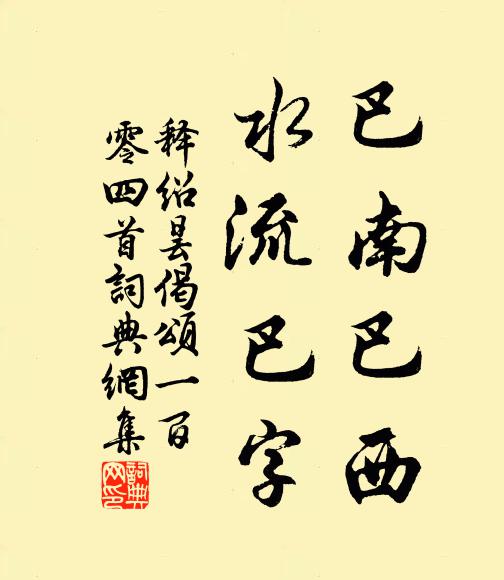 巴南巴西
水流巴字
释绍昙偈頌一百
零四首詞典網集
詞典网印